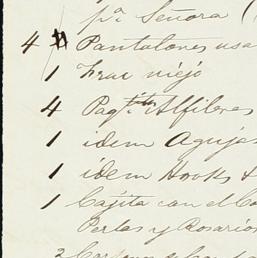 pª Señora (
4 Pantalones usa
1 Frac viejo
4 Paqtitos Alfileres
1 idem Agujas
1 idem Hooks &
1 Cajita con el Co
Perlas y Rosarios